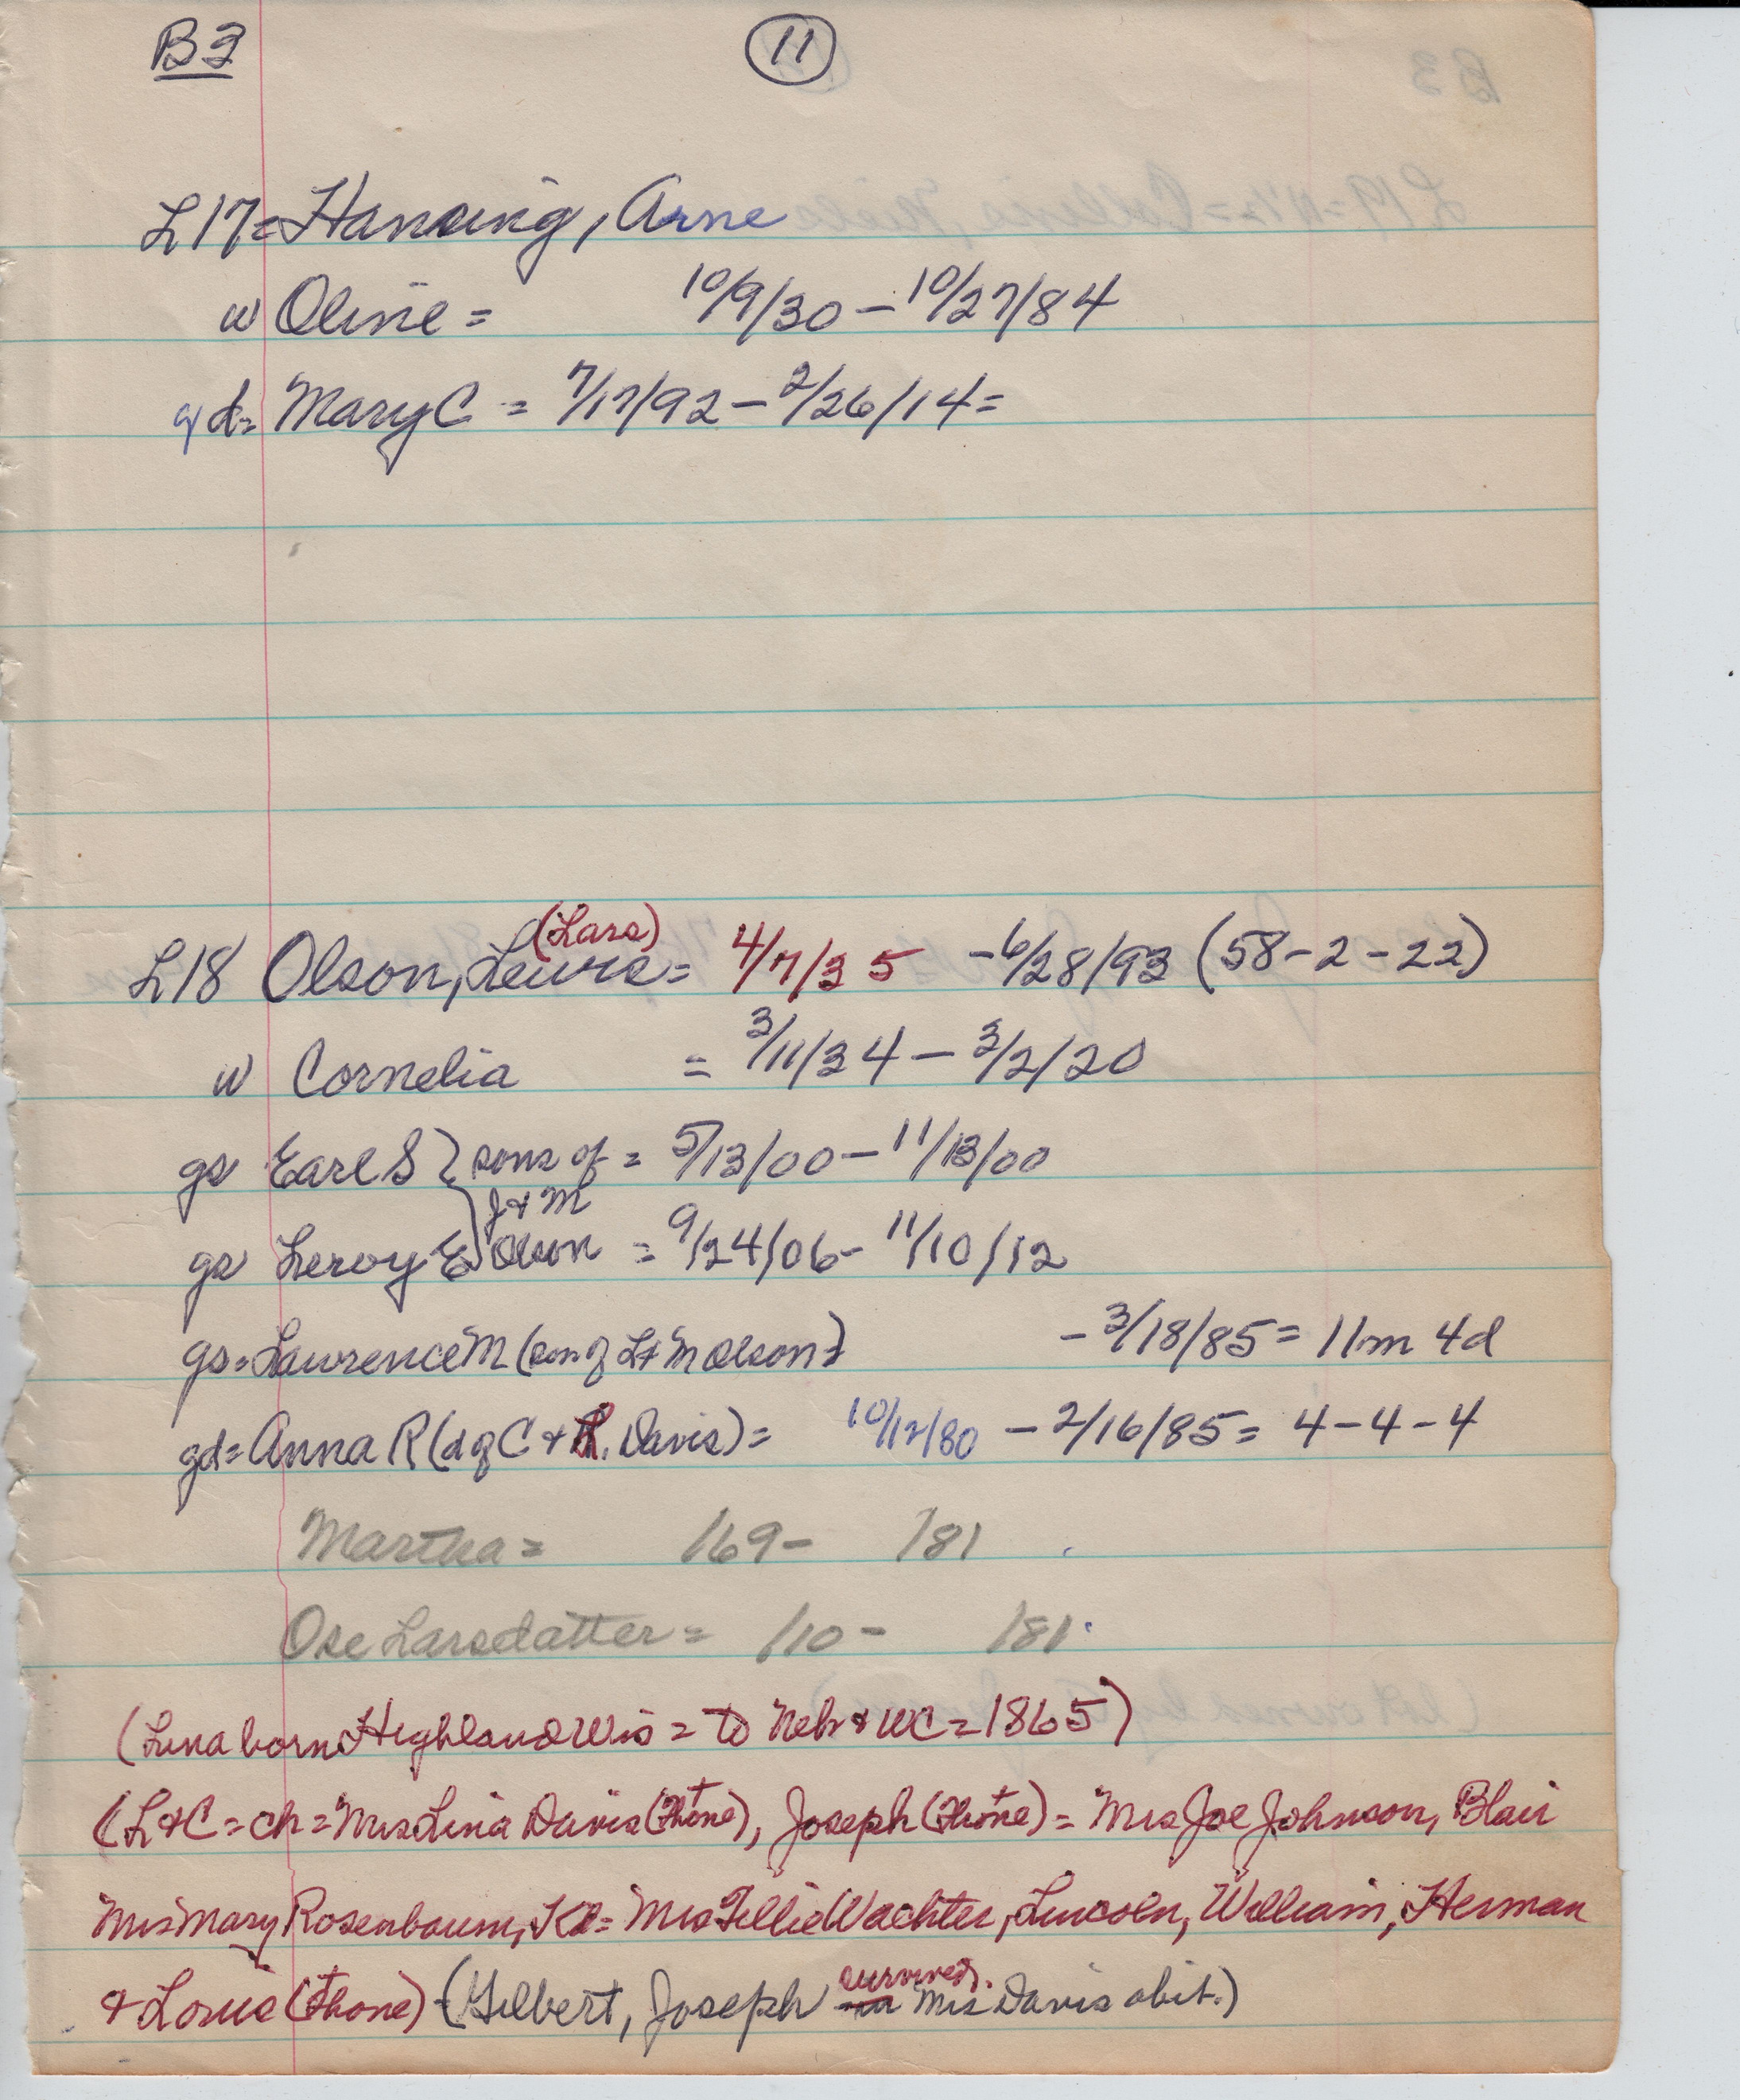 B3 11
L17= Hansing, Arne
w Oline = 10/9/30 - 10/27/84
gd= Mary C = 7/17/92 - 2/26/14=
(Lars)
L18 Olson, Lewis = 4/7/35 - 6/28/93 (58-2-22)
w Cornelia = 3/11/34 - 3/2/20
gs Earl S } sons of = 5/13/00 - 11/13/00
J & M
gs Leroy E } Olson = 9/24/06 - 11/10/12
gs= Lawrence M (son of L & M Olson) - 3/18/85 = 11m 4d
gd= Anna R (d of C & L. Davis) = 10/12/80 - 2/16/85 = 4-4-4
Martha = /69 - /81
Ose Larsdatter = /10 - /81
(Lena born Highland Wis = to Neb & WC = 1865)
(L & C = ch = Mrs Lina Davis (thone), Joseph (thone) = Mrs Joe Johnson, Blair
Mrs Mary Rosenbaum, = Mrs Tillie Wachter, Lincoln, William, Herman
& Louis (thone) - (Gilbert, Joseph survived. Mrs Davis obit.)